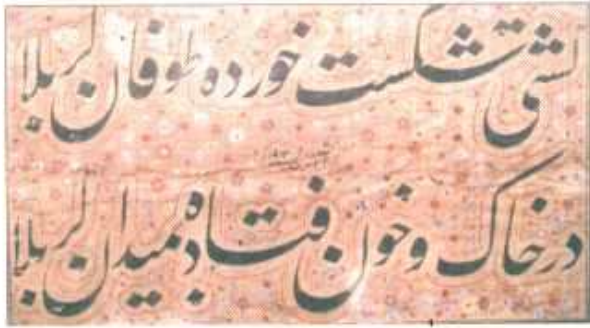 کشتی شکست خورده طوفان کربلا
در خاک و خون فتاده بمیدان کربلا